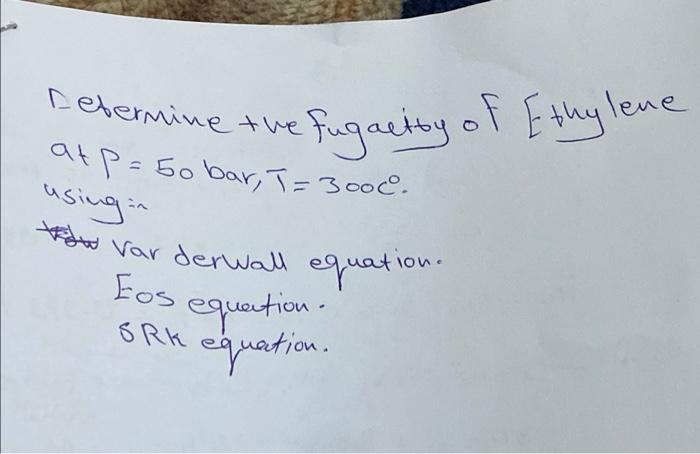 Determine the fugacity of Ethylene
at P = 50 bar, T = 300C°.
using in
Var derWall equation.
Eos equation.
SRK equation.